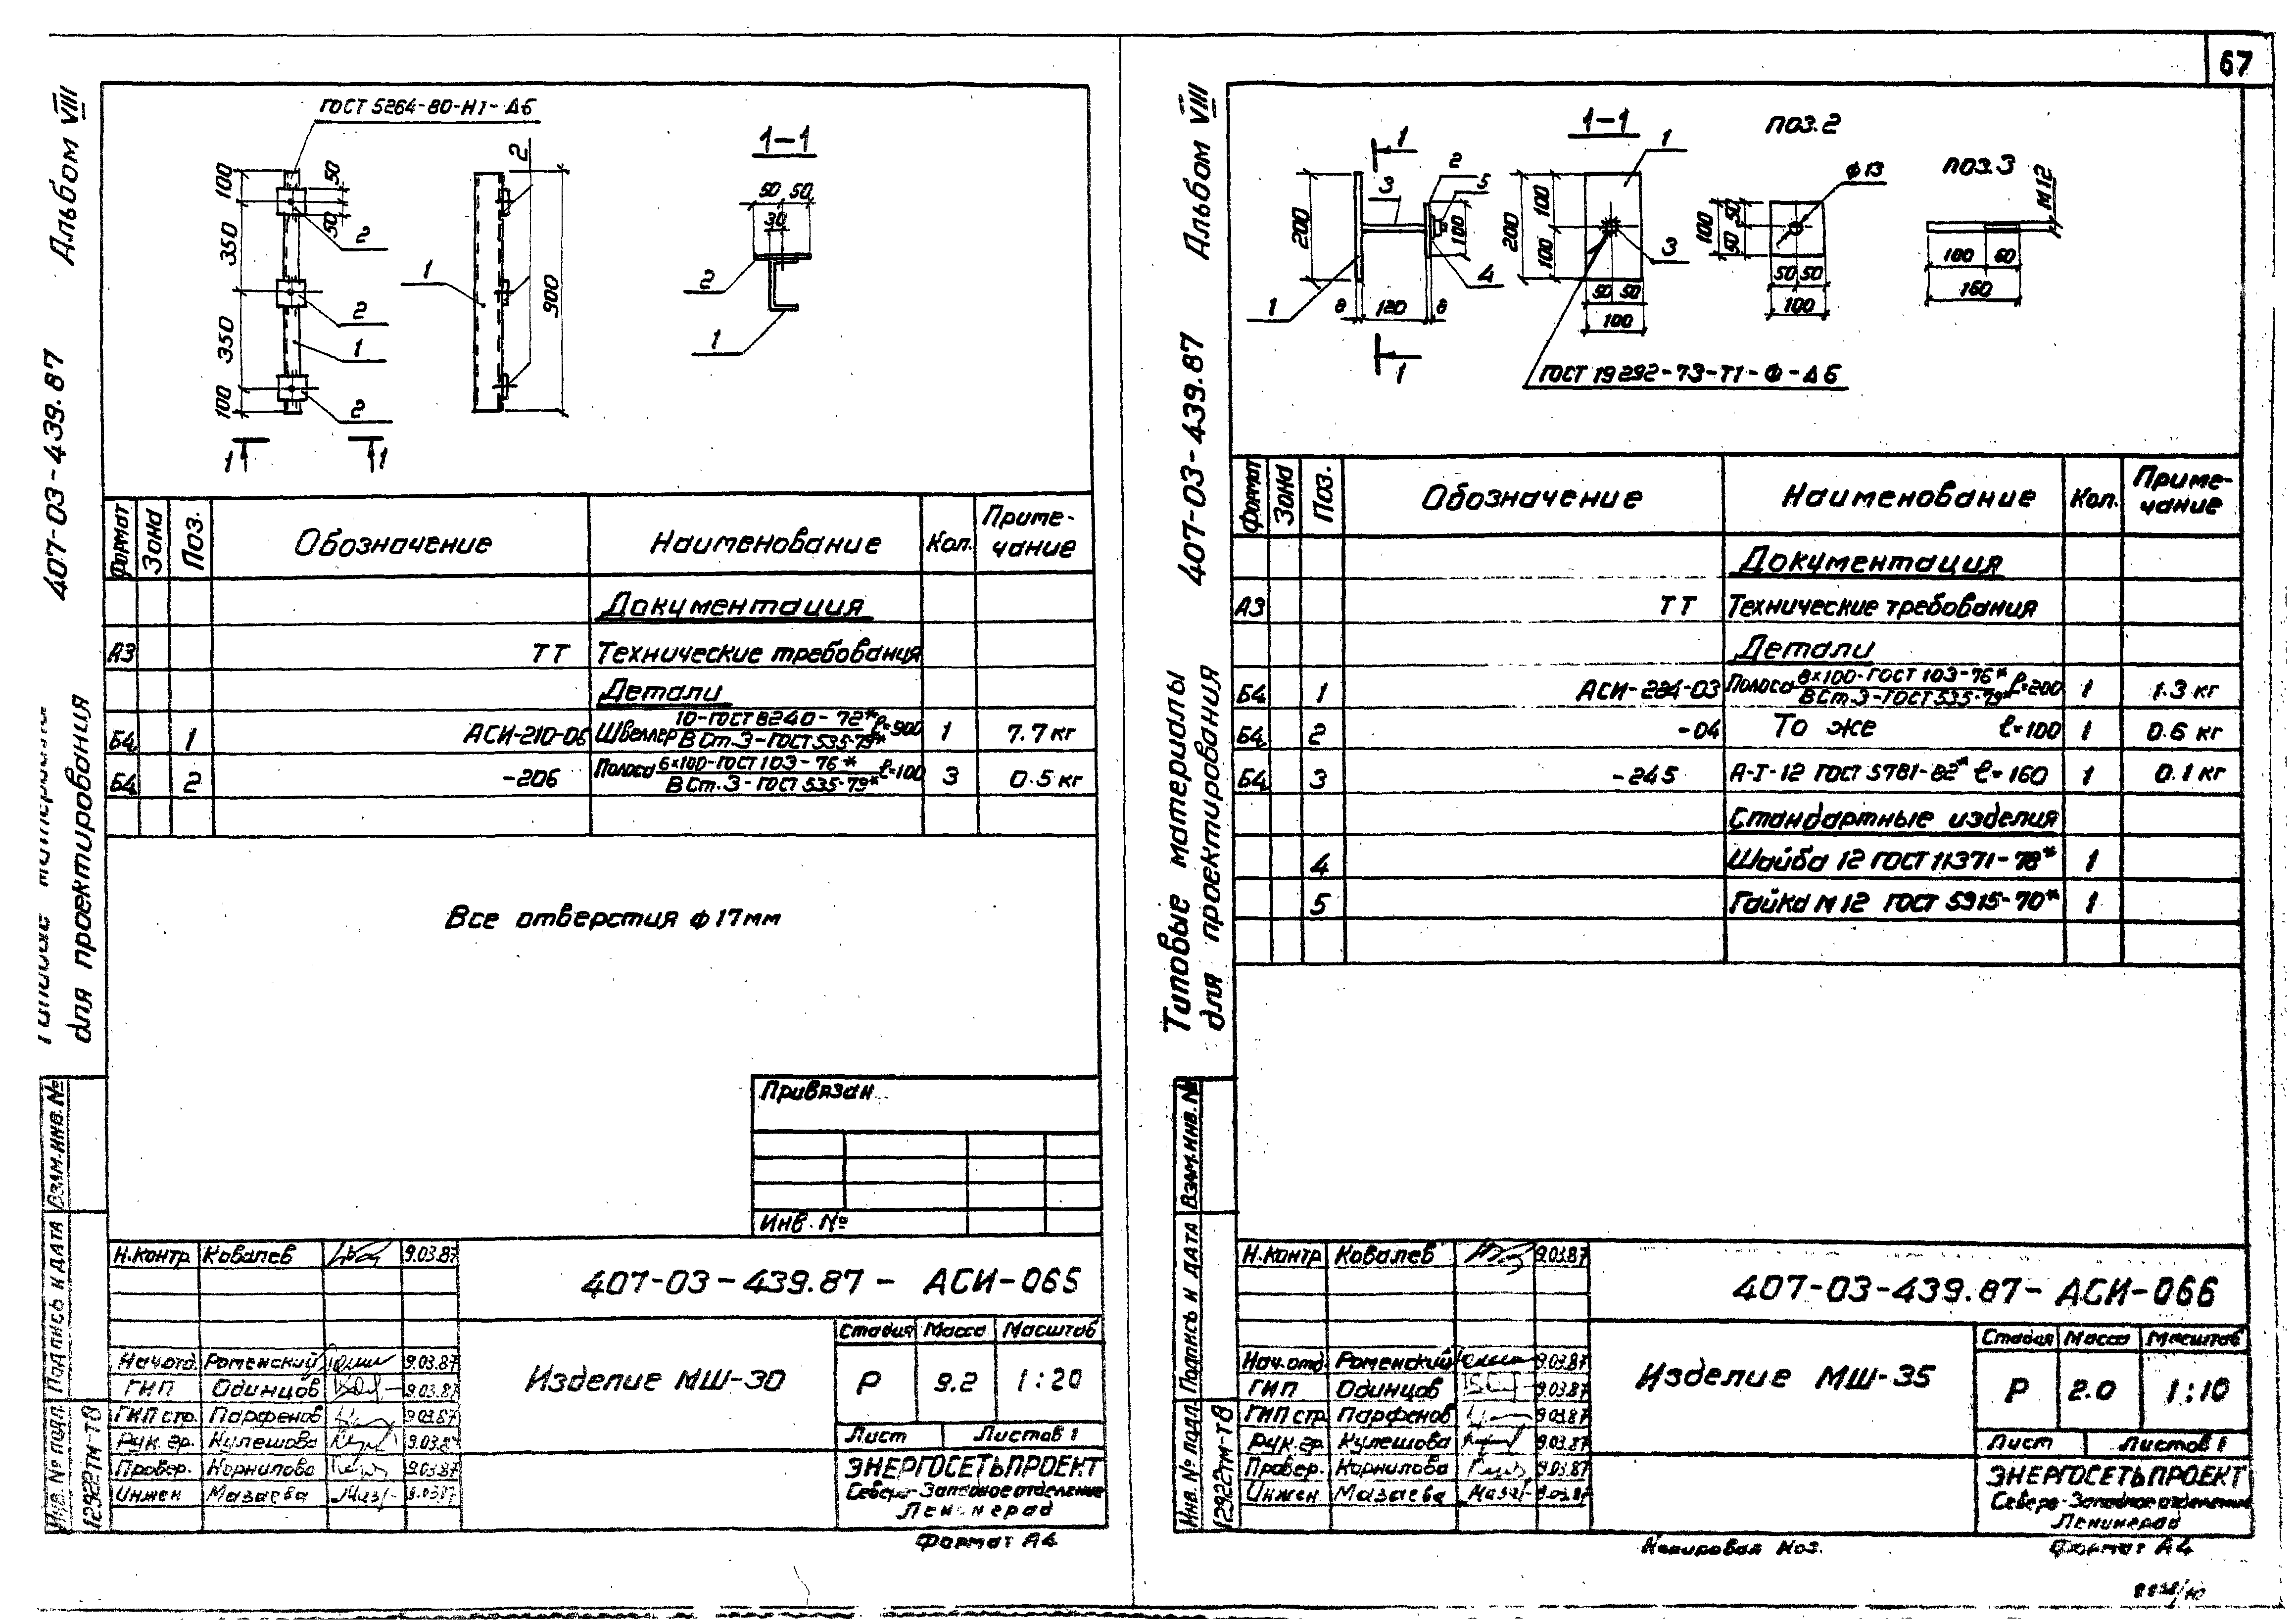 67
Альбом VIII
407-03-439.87
для проектирования
ГОСТ 5264-80-Н1-Δ6
100
350
350
100
50
50
2
2
1
2
1 1
2
1
900
1-1
50 50
30
2
1
Формат Зона Поз. Обозначение Наименование Кол. Приме-
чание
Документация
А3 ТТ Технические требования
Детали
Б4 1 АСИ-210-06 Швеллер 10-ГОСТ 8240-72* ℓ=900 1 7.7 кг
В Ст.3-ГОСТ 535-79*
Б4 2 -206 Полоса 6×100-ГОСТ 103-76* ℓ=100 3 0.5 кг
В Ст.3-ГОСТ 535-79*
Все отверстия ф 17мм
Привязан
Инв. №
Взам.инв.№
Подпись и дата
Инв. № подл.
12922тм-т8
Н.контр Ковалев 9.03.87
Нач.отд. Роменский 9.03.87
ГИП Одинцов 9.03.87
ГИП стр. Парфенов 9.03.87
Рук. гр. Кулешова 9.03.87
Провер. Корнилова 9.03.87
Инжен Мазаева 9.03.87
407-03-439.87 - АСИ-065
Изделие МШ-30
Стадия Масса Масштаб
Р 9.2 1:20
Лист Листов 1
ЭНЕРГОСЕТЬПРОЕКТ
Северо-Западное отделение
Ленинград
Формат А4
Альбом VIII
407-03-439.87
Типовые материалы
для проектирования
1
200
3
2
5
100
4
1
8 120 8
1
1-1
1
200
100
100
3
50 50
100
ГОСТ 19292-73-Т1-Ф-Δ6
поз.2
ф13
100
50
50
50 50
100
поз.3
М12
100 60
160
Формат Зона Поз. Обозначение Наименование Кол. Приме-
чание
Документация
А3 ТТ Технические требования
Детали
Б4 1 АСИ-284-03 Полоса 8×100-ГОСТ 103-76* ℓ=200 1 1.3 кг
В Ст.3-ГОСТ 535-79*
Б4 2 -04 То же ℓ=100 1 0.6 кг
Б4 3 -245 А-I-12 ГОСТ 5781-82* ℓ=160 1 0.1 кг
Стандартные изделия
4 Шайба 12 ГОСТ 11371-78* 1
5 Гайка М12 ГОСТ 5915-70* 1
Взам.инв.№
Подпись и дата
Инв. № подл.
12922тм-т8
Н.контр Ковалев 9.03.87
Нач.отд. Роменский 9.03.87
ГИП Одинцов 9.03.87
ГИП стр Парфенов 9.03.87
Рук. гр. Кулешова 9.03.87
Провер. Корнилова 9.03.87
Инжен. Мазаева 9.03.87
407-03-439.87 - АСИ-066
Изделие МШ-35
Стадия Масса Масштаб
Р 2.0 1:10
Лист Листов 1
ЭНЕРГОСЕТЬПРОЕКТ
Северо-Западное отделение
Ленинград
Копировал Формат А4